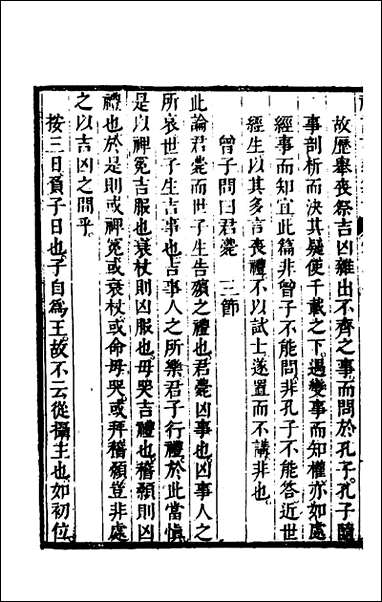 故歷舉喪祭吉凶雜出不齊之事而問於孔子孔子隨
事剖析而決其疑使千載之下遇變事而知權亦如處
經事而知宜此篇非曾子不能問非孔子不能答近世
經生以其多言喪禮不以試士遂置而不講非也
曾子問曰君薨 三節
此論君薨而世子生告殯之禮也君薨凶事也凶事人之
所哀世子生吉事也吉事人之所樂君子行禮於此當慎
是以裨冕吉服也衰杖則凶服也毋哭吉禮也稽顙則凶
禮也於是則或裨冕或衰杖或命毋哭或拜稽顙豈非處
之以吉凶之間乎
按三日負子日也子自爲王故不云從攝主也如初位